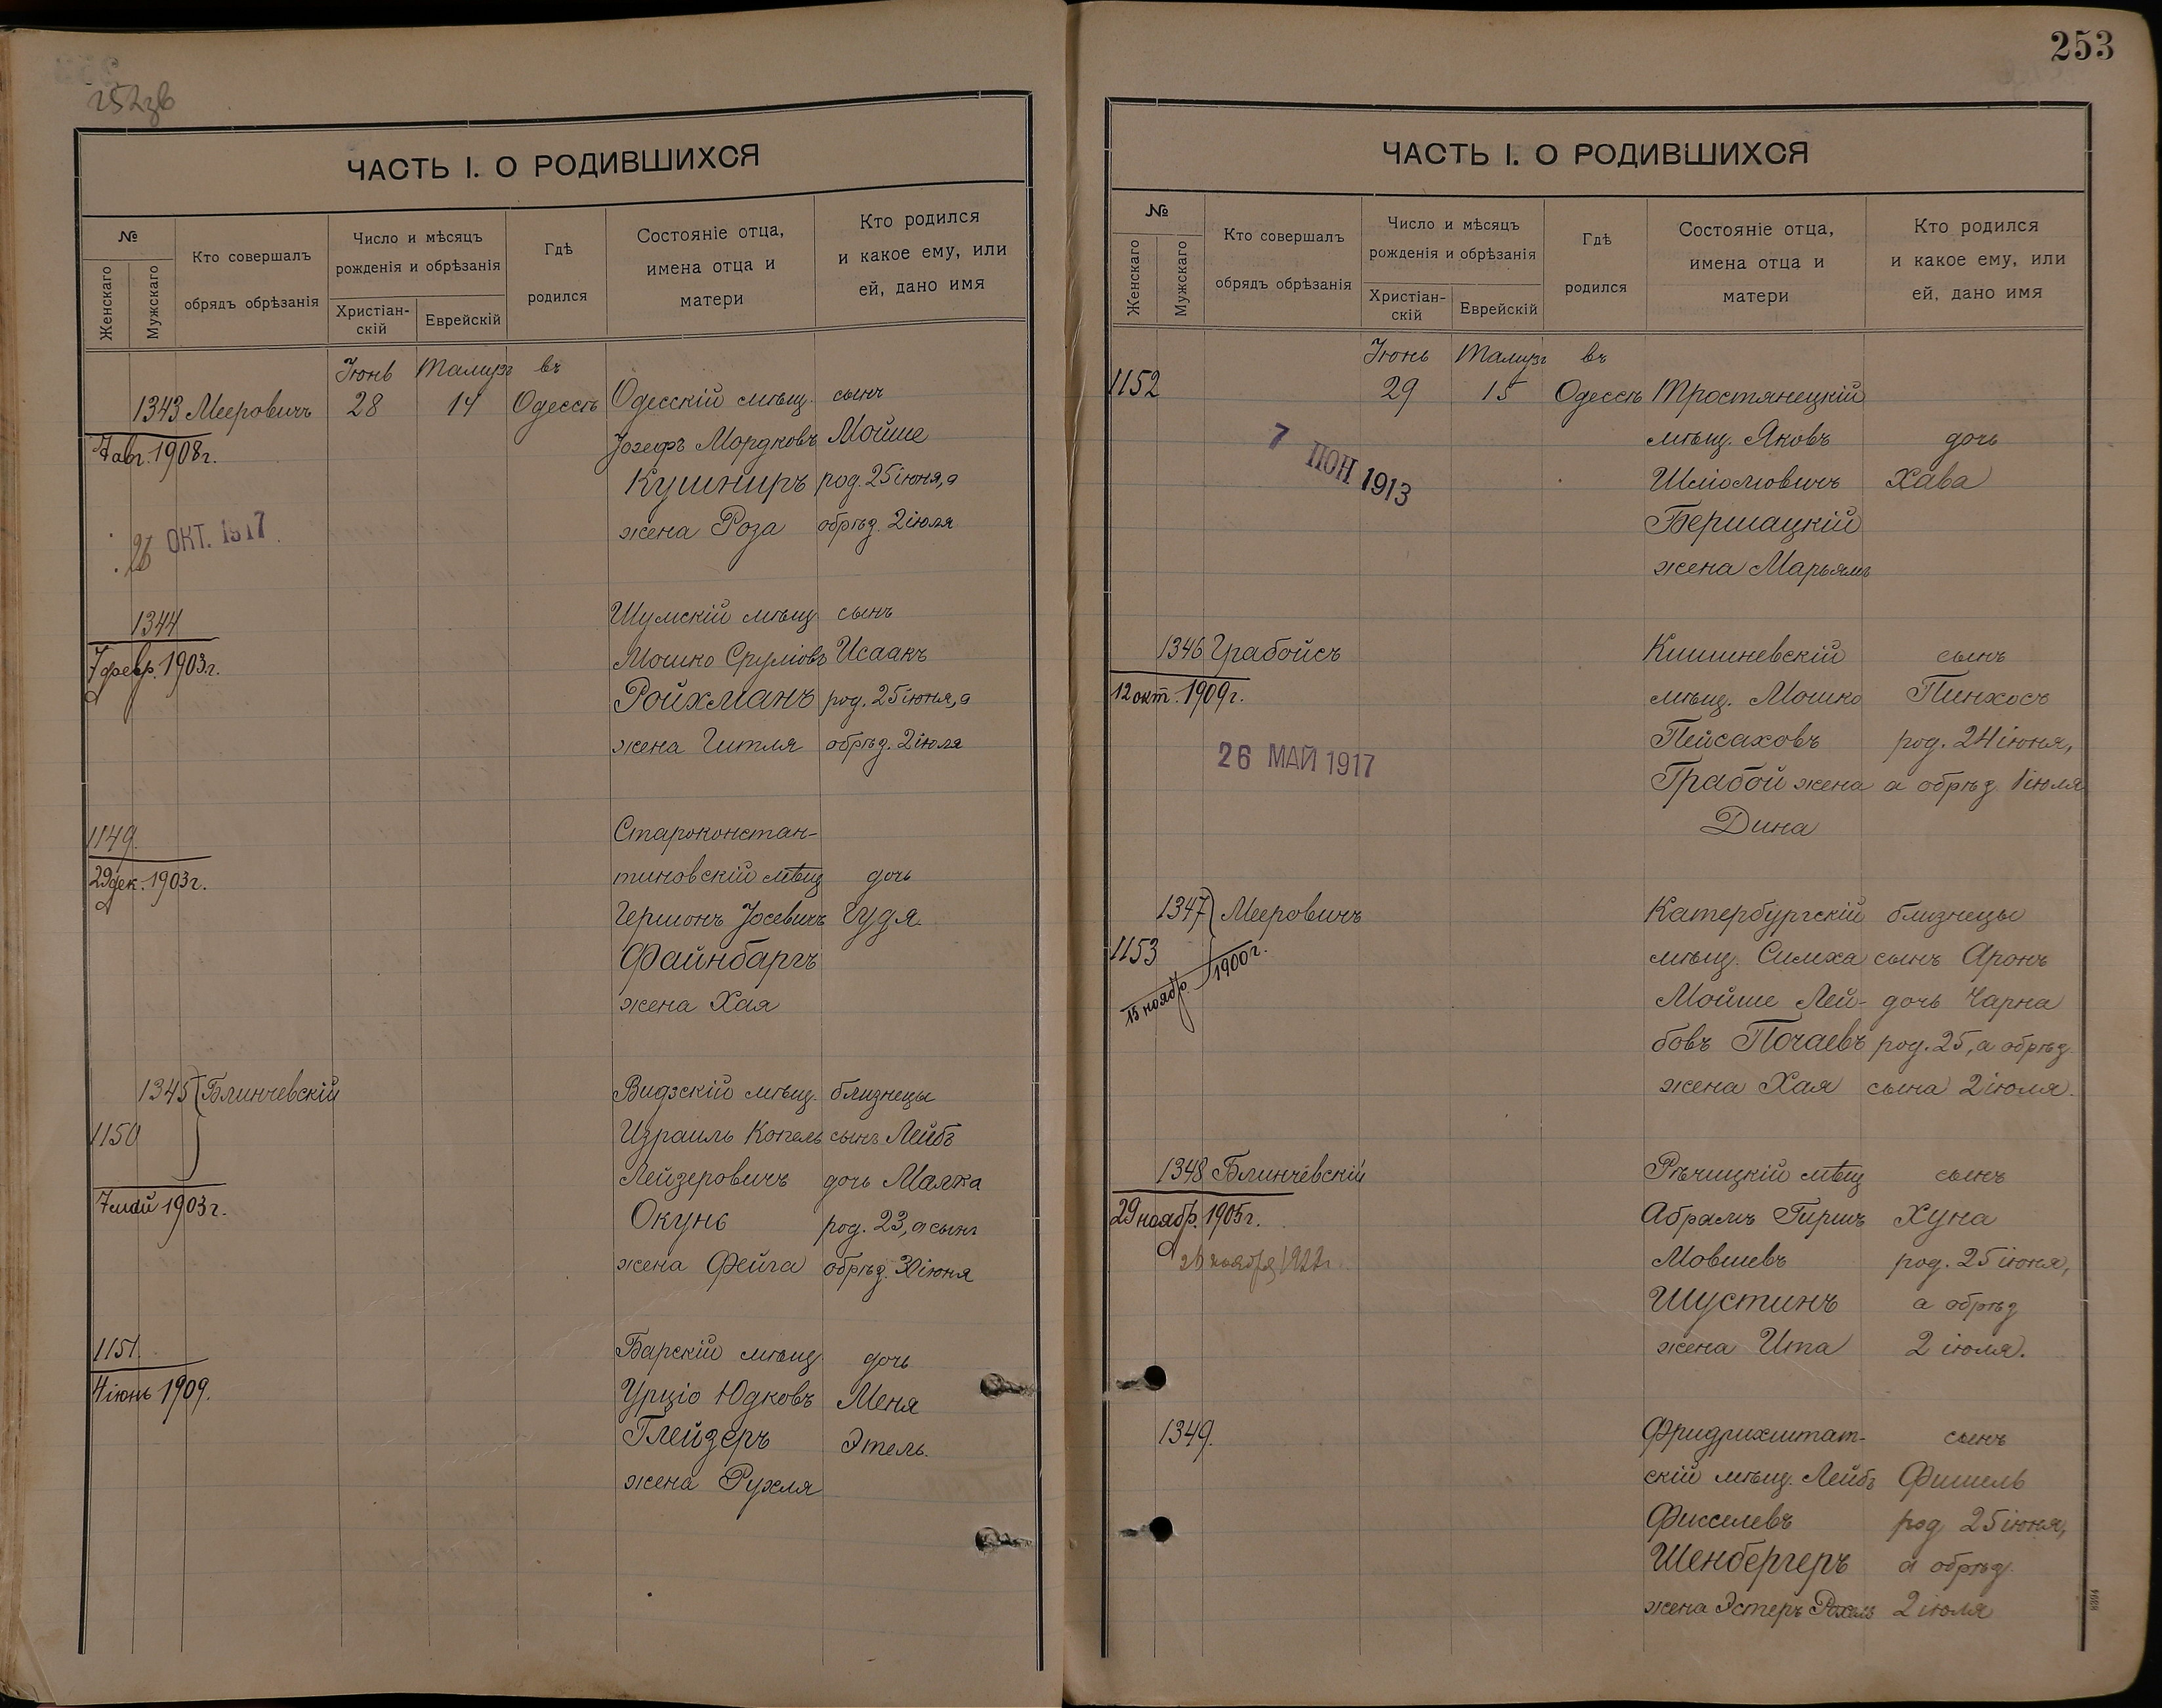 252зв
ЧАСТЬ I. О РОДИВШИХСЯ
№
Женскаго
Мужскаго
Кто совершалъ
обрядъ обрѣзанія
Число и мѣсяцъ
рожденія и обрѣзанія
Христіан-
скій
Еврейскій
Гдѣ
родился
Состояніе отца,
имена отца и
матери
Кто родился
и какое ему, или
ей, дано имя
Іюнь Тамузъ въ
1343 Мееровичъ 28 14 Одессѣ Одесскій мѣщ. сынъ
7 авг. 1908 г. Іозефъ Мордковъ Мойше
Кушниръ род. 25 іюня, а
26 ОКТ. 1917 жена Роза обрѣз. 2 іюля
1344 Шумскій мѣщ. сынъ
7 февр. 1903 г. Мошко Сруліовъ Исаакъ
Ройхманъ род. 25 іюня, а
жена Гитля обрѣз. 2 іюля
1149. Староконстан-
29 дек. 1903 г. тиновскій мѣщ дочь
Гершонъ Іосевичъ Гудя.
Файнбаргъ
жена Хая
1345 Блинчевскій Видзскій мѣщ. близнецы
1150 Израиль Копель сынъ Лейбъ
Лейзеровичъ дочь Малка
7 май 1903 г. Окунь род. 23, а сынъ
жена Фейга обрѣз. 30 іюня
1151. Барскій мѣщ. дочь
4 іюнь 1909. Урціо Юдковъ Меня
Глейзеръ Этель.
жена Рухля
253
ЧАСТЬ I. О РОДИВШИХСЯ
№
Женскаго
Мужскаго
Кто совершалъ
обрядъ обрѣзанія
Число и мѣсяцъ
рожденія и обрѣзанія
Христіан-
скій
Еврейскій
Гдѣ
родился
Состояніе отца,
имена отца и
матери
Кто родился
и какое ему, или
ей, дано имя
Іюнь Тамузъ въ
1152 29 15 Одессѣ Тростянецкій
мѣщ. Яковъ дочь
7 ІЮН 1913 Шліомовичъ Хава
Бершацкій
жена Марьямъ
1346 Грабойсъ Кишиневскій сынъ
12 окт. 1909 г. мѣщ. Мошко Пинхосъ
Пейсаховъ род. 24 іюня,
26 МАЙ 1917 Грабой жена а обрѣз. 1 іюля
Дина
1347 Мееровичъ Катербургскій близнецы
1153 мѣщ. Симха сынъ Аронъ
15 ноябр. 1900 г. Мойше Лей- дочь Чарна
бовъ Почаевъ род. 25, а обрѣз
жена Хая сына 2 іюля.
1348 Блинчевскій Рѣчицкій мѣщ сынъ
29 ноябр. 1905 г. Абрамъ Гиршъ Хуна
26 ноября 1922 г. Мовшевъ род. 25 іюня,
Шустинъ а обрѣз
жена Ита 2 іюля.
1349. Фридрихштат- сынъ
скій мѣщ. Лейбъ Фишель
Фисселевъ род 25 іюня,
Шенбергеръ а обрѣз
жена Эстеръ Рохель 2 іюля